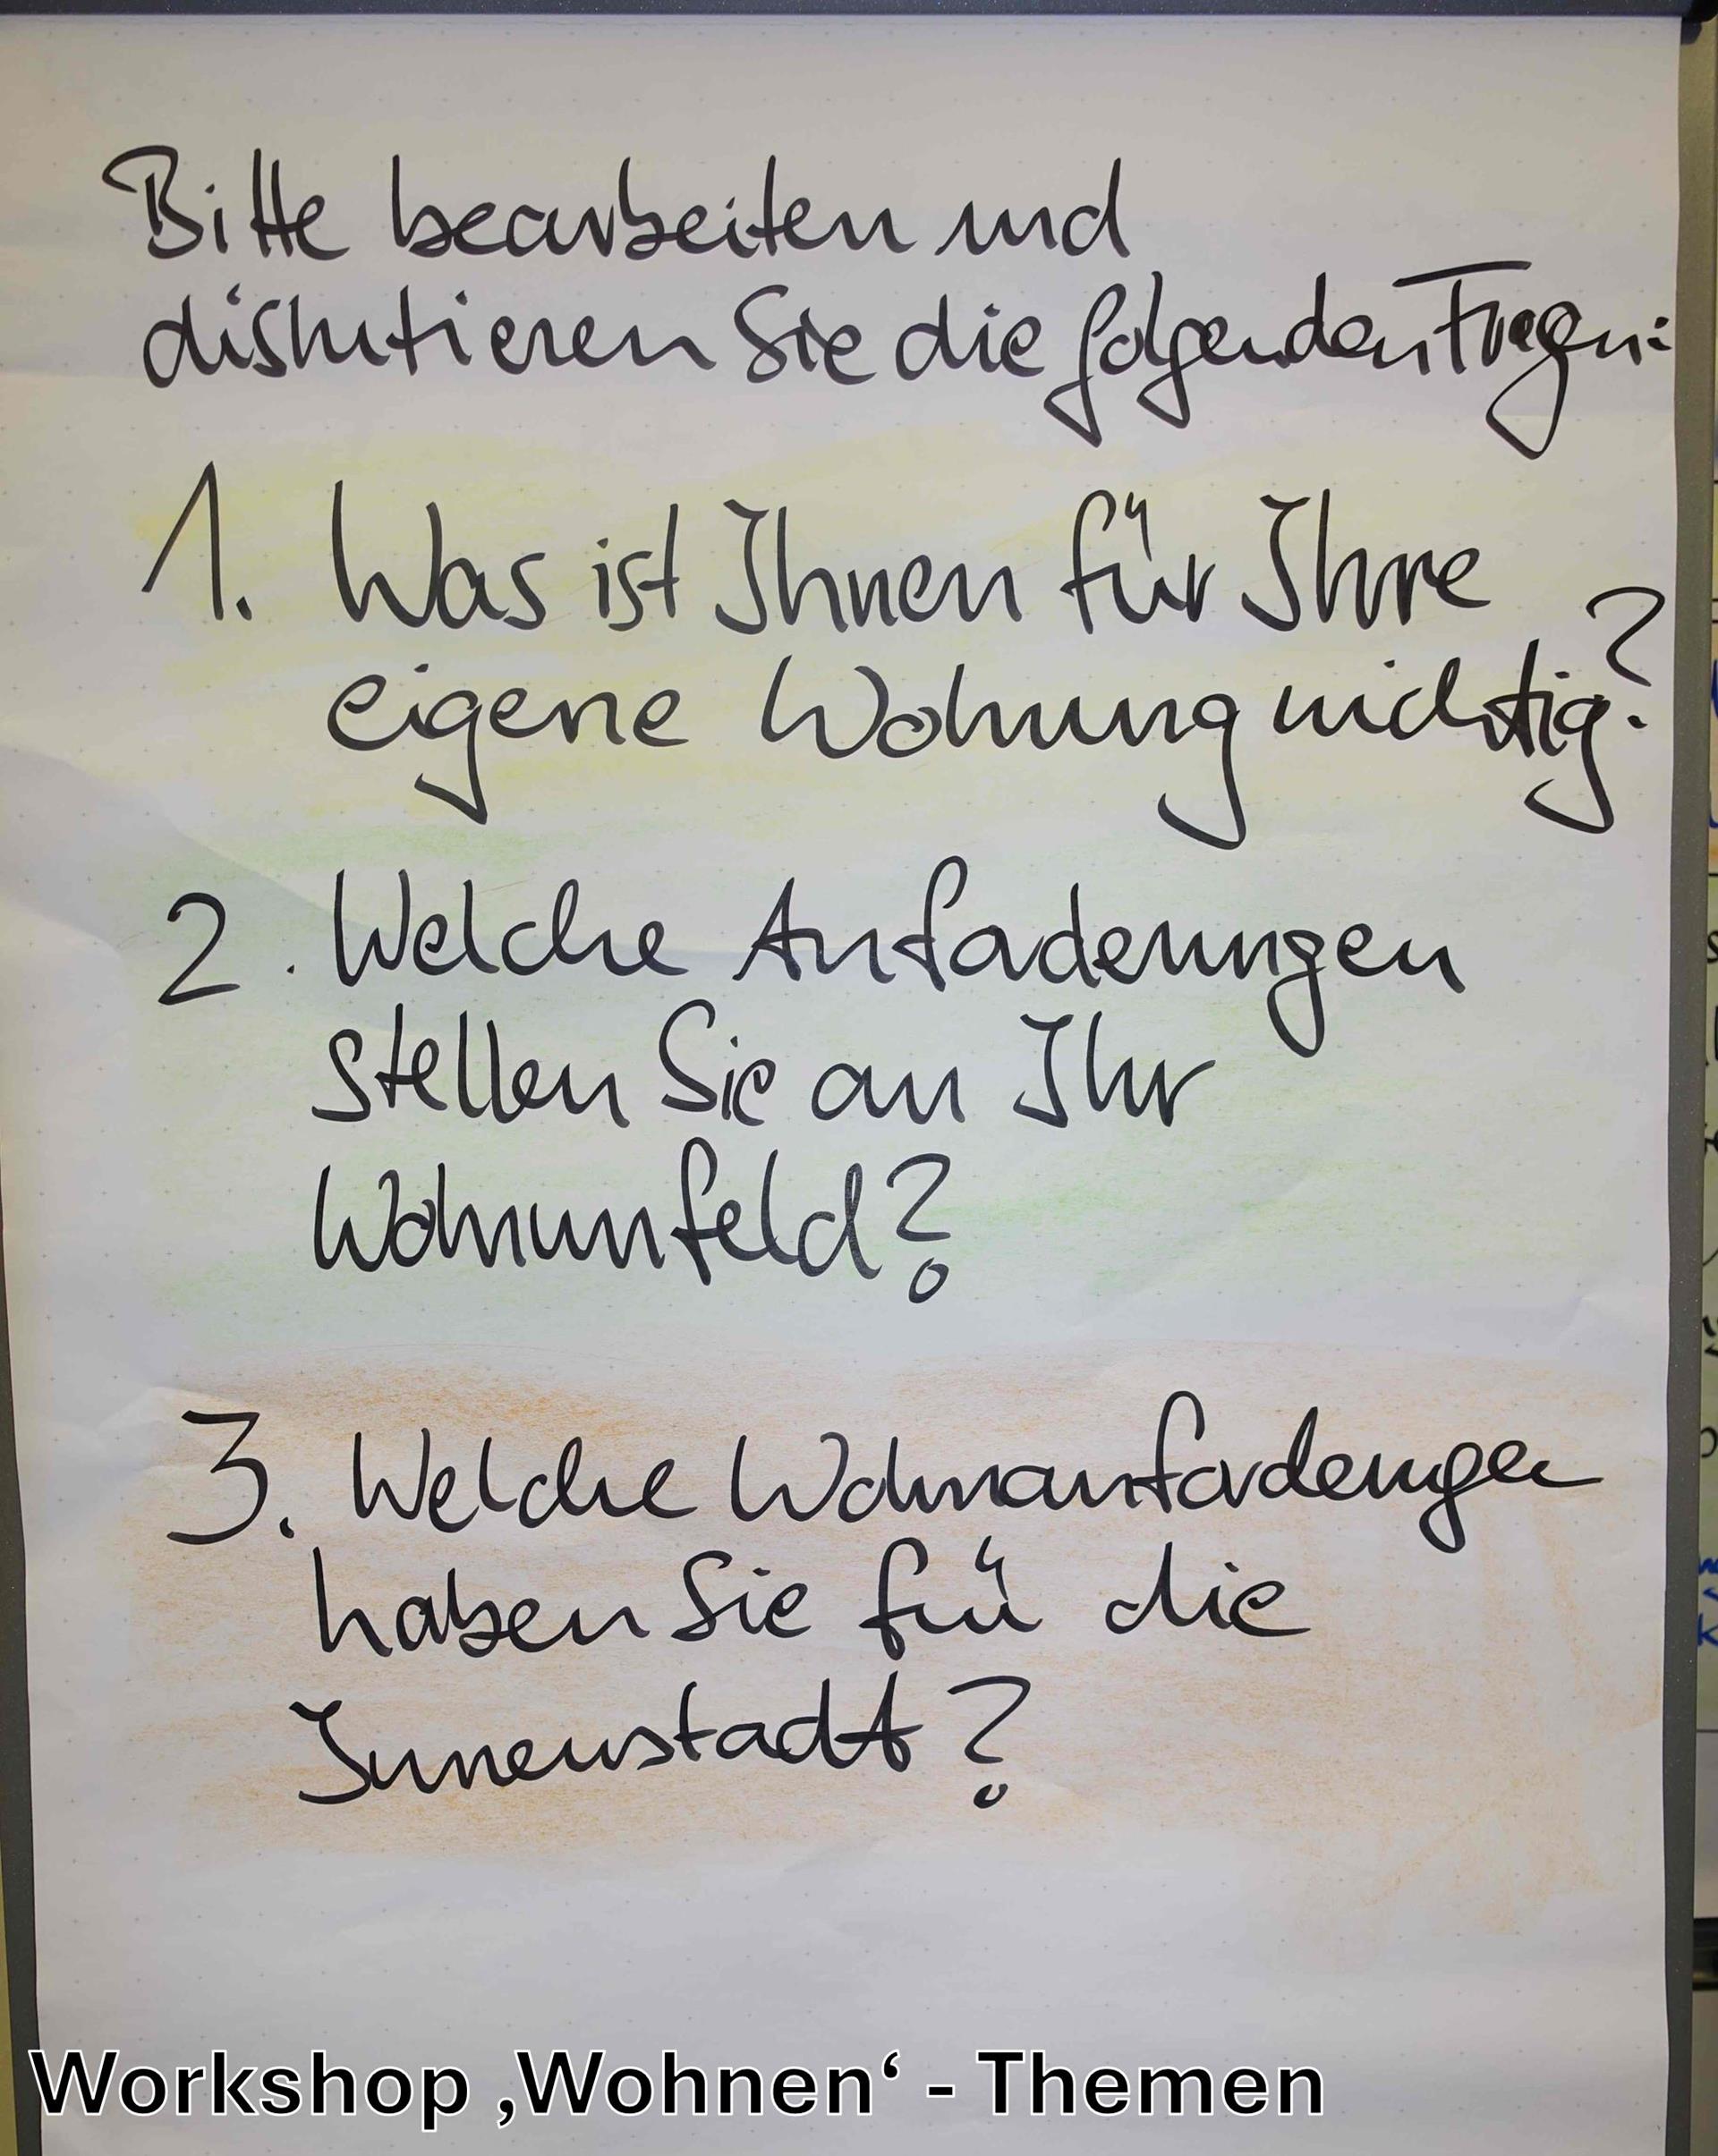 Bitte bearbeiten und
diskutieren Sie die folgenden Fragen:
1. Was ist Ihnen für Ihre
eigene Wohnung wichtig?
2. Welche Anforderungen
stellen Sie an Ihr
Wohnumfeld?
3. Welche Wohnanforderungen
haben Sie für die
Innenstadt?
Workshop ‚Wohnen‘ - Themen